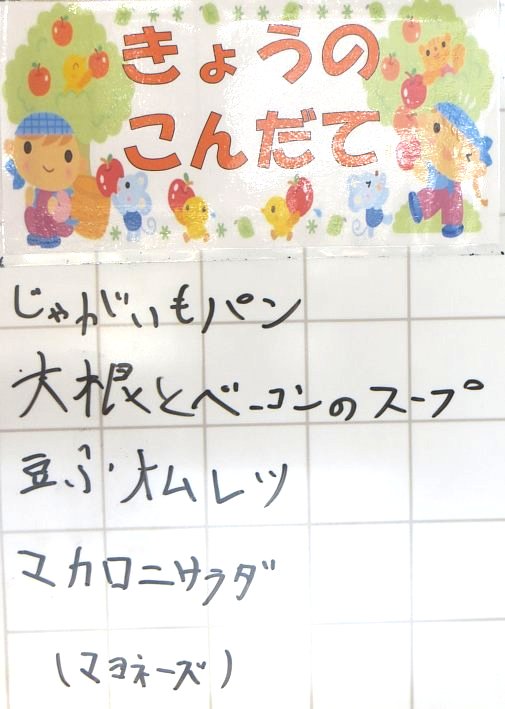 きょうの
こんだて
じゃがいもパン
大根とベーコンのスープ
豆ふオムレツ
マカロニサラダ
(マヨネーズ)